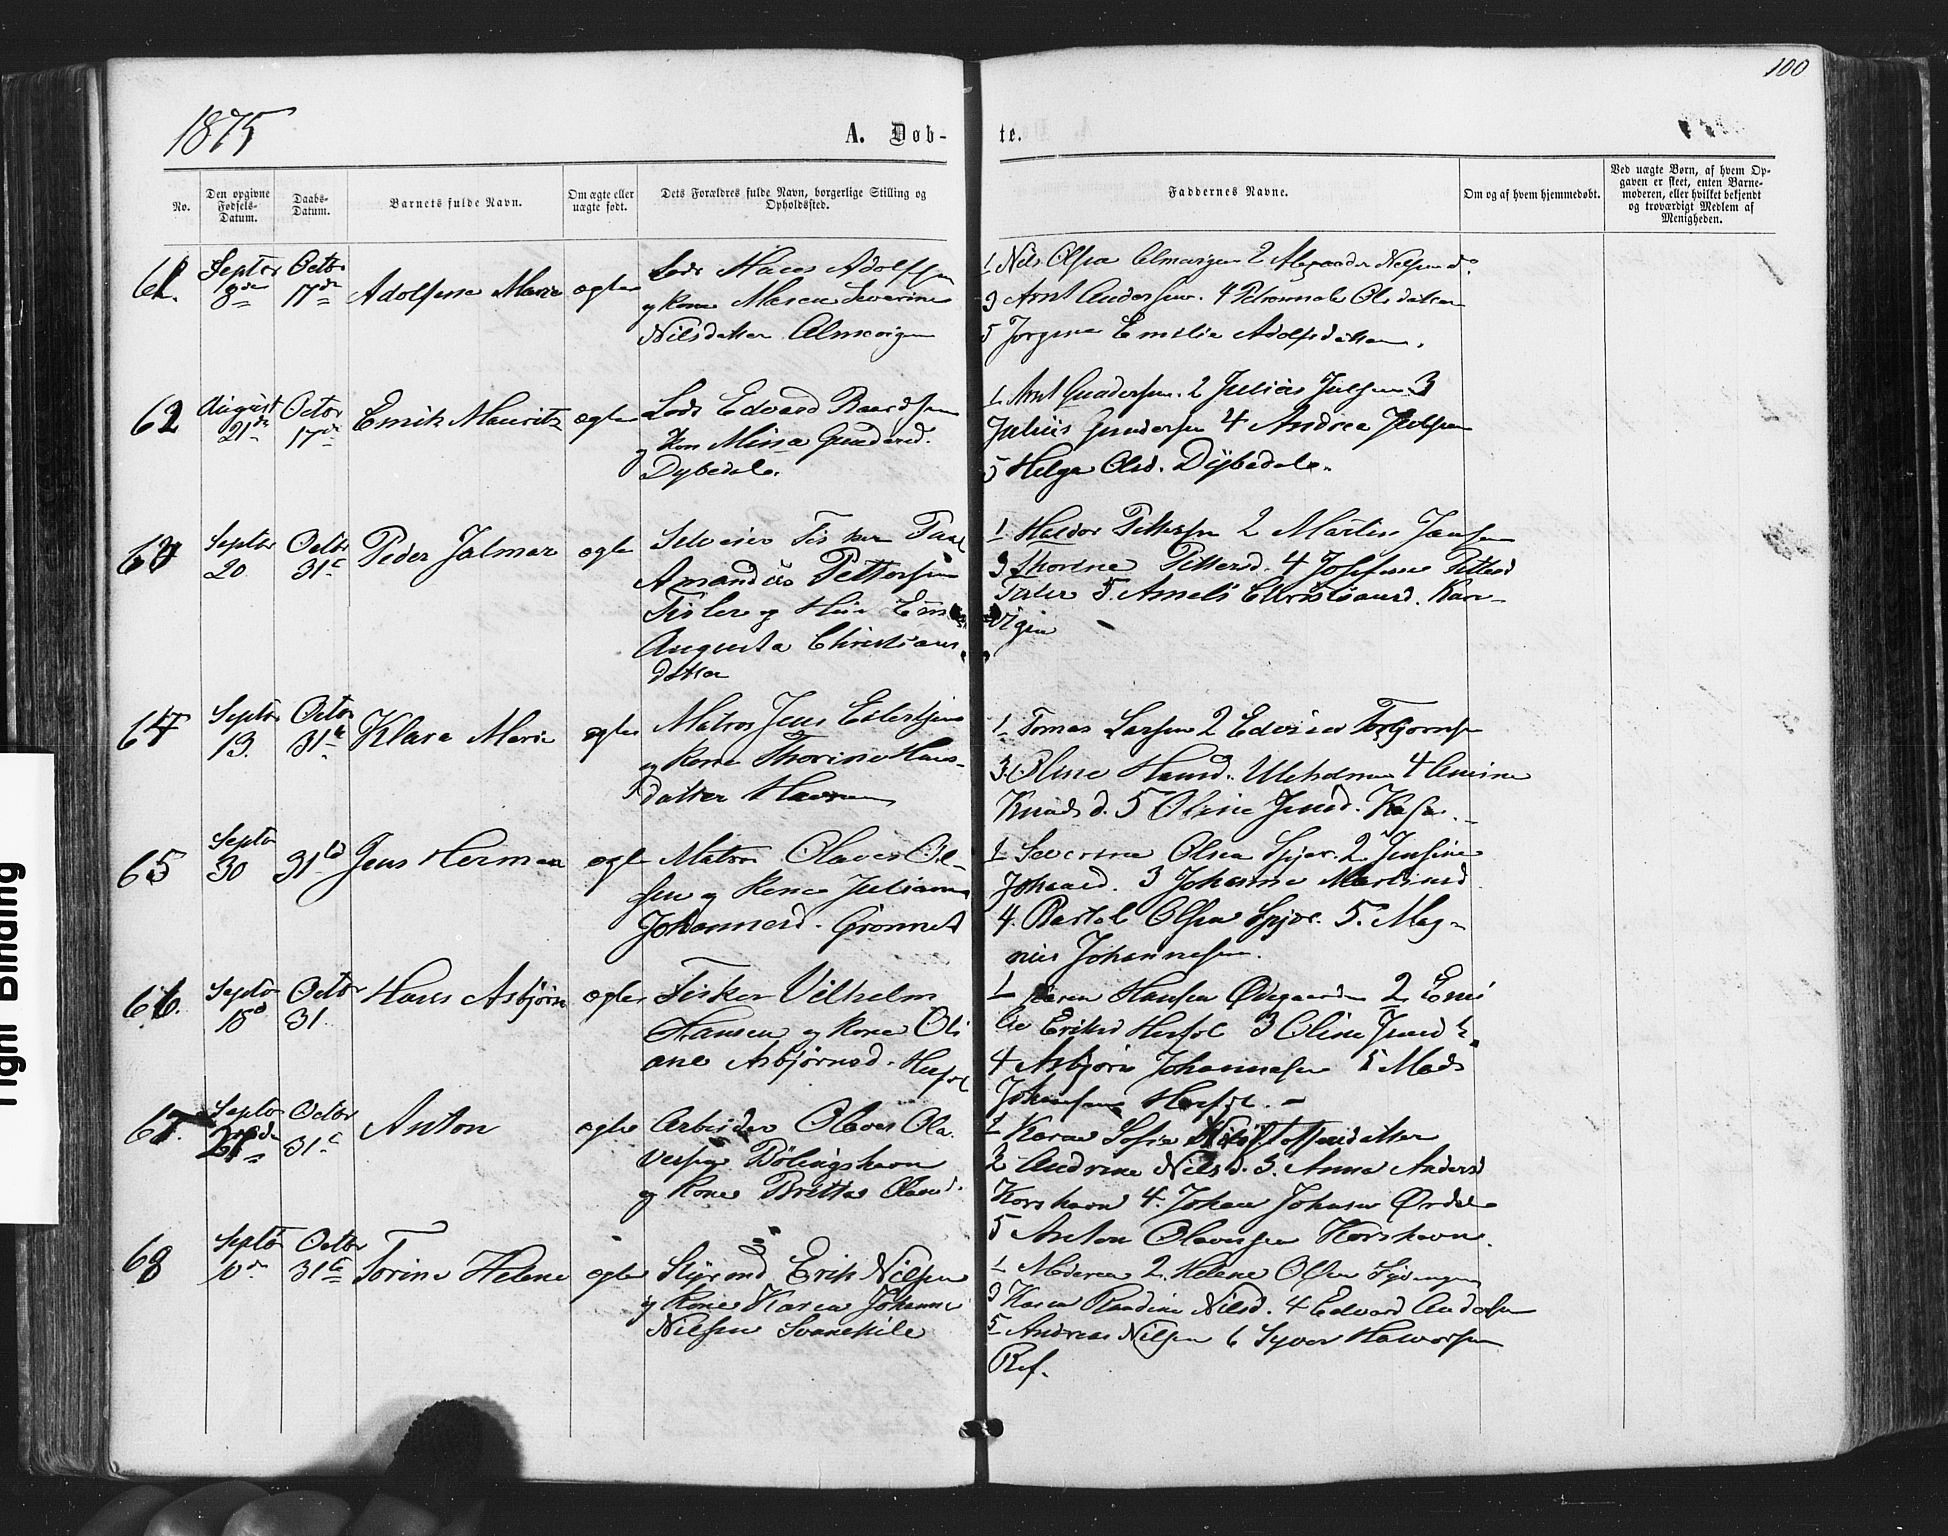 100
1875
A. Døb-
te.
No.
Den opgivne Fødsels-Datum.
Daabs-Datum.
Barnets fulde Navn.
Om ægte eller uægte født.
Dets Forældres fulde Navn, borgerlige Stilling og Opholdssted.
Faddernes Navne.
Om og af hvem hjemmedøbt.
Ved uægte Børn, af hvem Op-
gaven er skeet, enten Barne-
moderen, eller hvilket bekjendt
og troværdigt Medlem af
Menigheden.
61. Septbr 8de Octbr 17de Adolfine Marie ægte
Lods Hans Adolfsen
og Kone Maren Severine
Nilsdatter
1 Nils Olsen 2 Alexander Nilsen do
3 Arnt Andersen. 4 Olsdatter
5 Jørgine Emilie Adolfsdatter.
62 August 21de Octbr 17de Emik Mauritz ægte
Lods Edvard Baardsen
og Kon Mina Gunders.
Dybedal.
1 Arnt Gundersen. 2 Julius Julsen 3
Julius Gundersen 4 Andrea
5 Helga Olsd. Dybedal.
63 Septbr 20 Octbr 31te Peder Jalmar ægte
Selveier Fisker
Amandus Pettersen
og
Augusta Christians
datter
1 Haldor Pettersen 2 Martin Jansen
3 Thorine Petters. 4 Josefine Petters
5. Ameli Christiansd.
vigen
64 Septbr 13. Octbr 31te Klara Marie ægte
Matros Jens Eilertsen
og Kone Thorine Hans-
datter Havsen
1 Tomas Larsen 2 Edvin Torgersen
3. Oline Hansd. 4
Knudsd. 5 Oline Jensd.
65 Septbr 30 31te Jens Herman ægte
Matros Olaves Ol-
sen og Kone Juliane
Johannesd. Grønnes
1 Severine Olsen Spjør. 2 Jensine
Johansd. 3 Johanne Martinsd
4. Bertel Olsen Spjør. 5. Mag-
nus Johannesen.
66. Septbr 15de Octbr 31 Hans Asbjørn ægte
Fisker Vilhelm
Hansen og Kone Oli
ane Asbjørnsd.
1 Hansen Ødegaarden 2 Emi
lie Eriksd 3 Oline Jensd
4 Asbjørn Johannesen 5 Mads
Johansen
67. Septbr Octbr 31te Anton ægte
Arbeider Olaves Ola
vesen Bölingshavn
og Kone Britta Olaves.
1 Karen Sofie
2 Andrine Nilsd. 3. Anna Andersd
Korshavn 4. Johan Johnsen Ørdal
5 Anton Olavesen Korshavn.
68 Septbr 10de Octbr 31te Torine Helene ægte
Styrmd Erik Nilsen
og Kone Karen Johanne
Nilsen Svanekile
1 Moderen 2. Helene Olsen
3 Karen Randine Nilsd. 4 Edvard Andersen
5 Andreas Nilsen 6 Syver Halvorsen
Ref.
Tight Binding